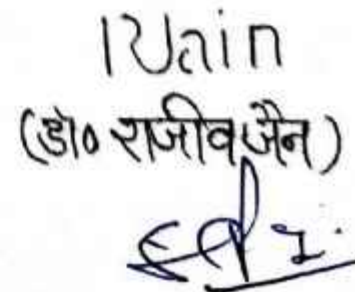 RJain
(डॉ० राजीव जैन)